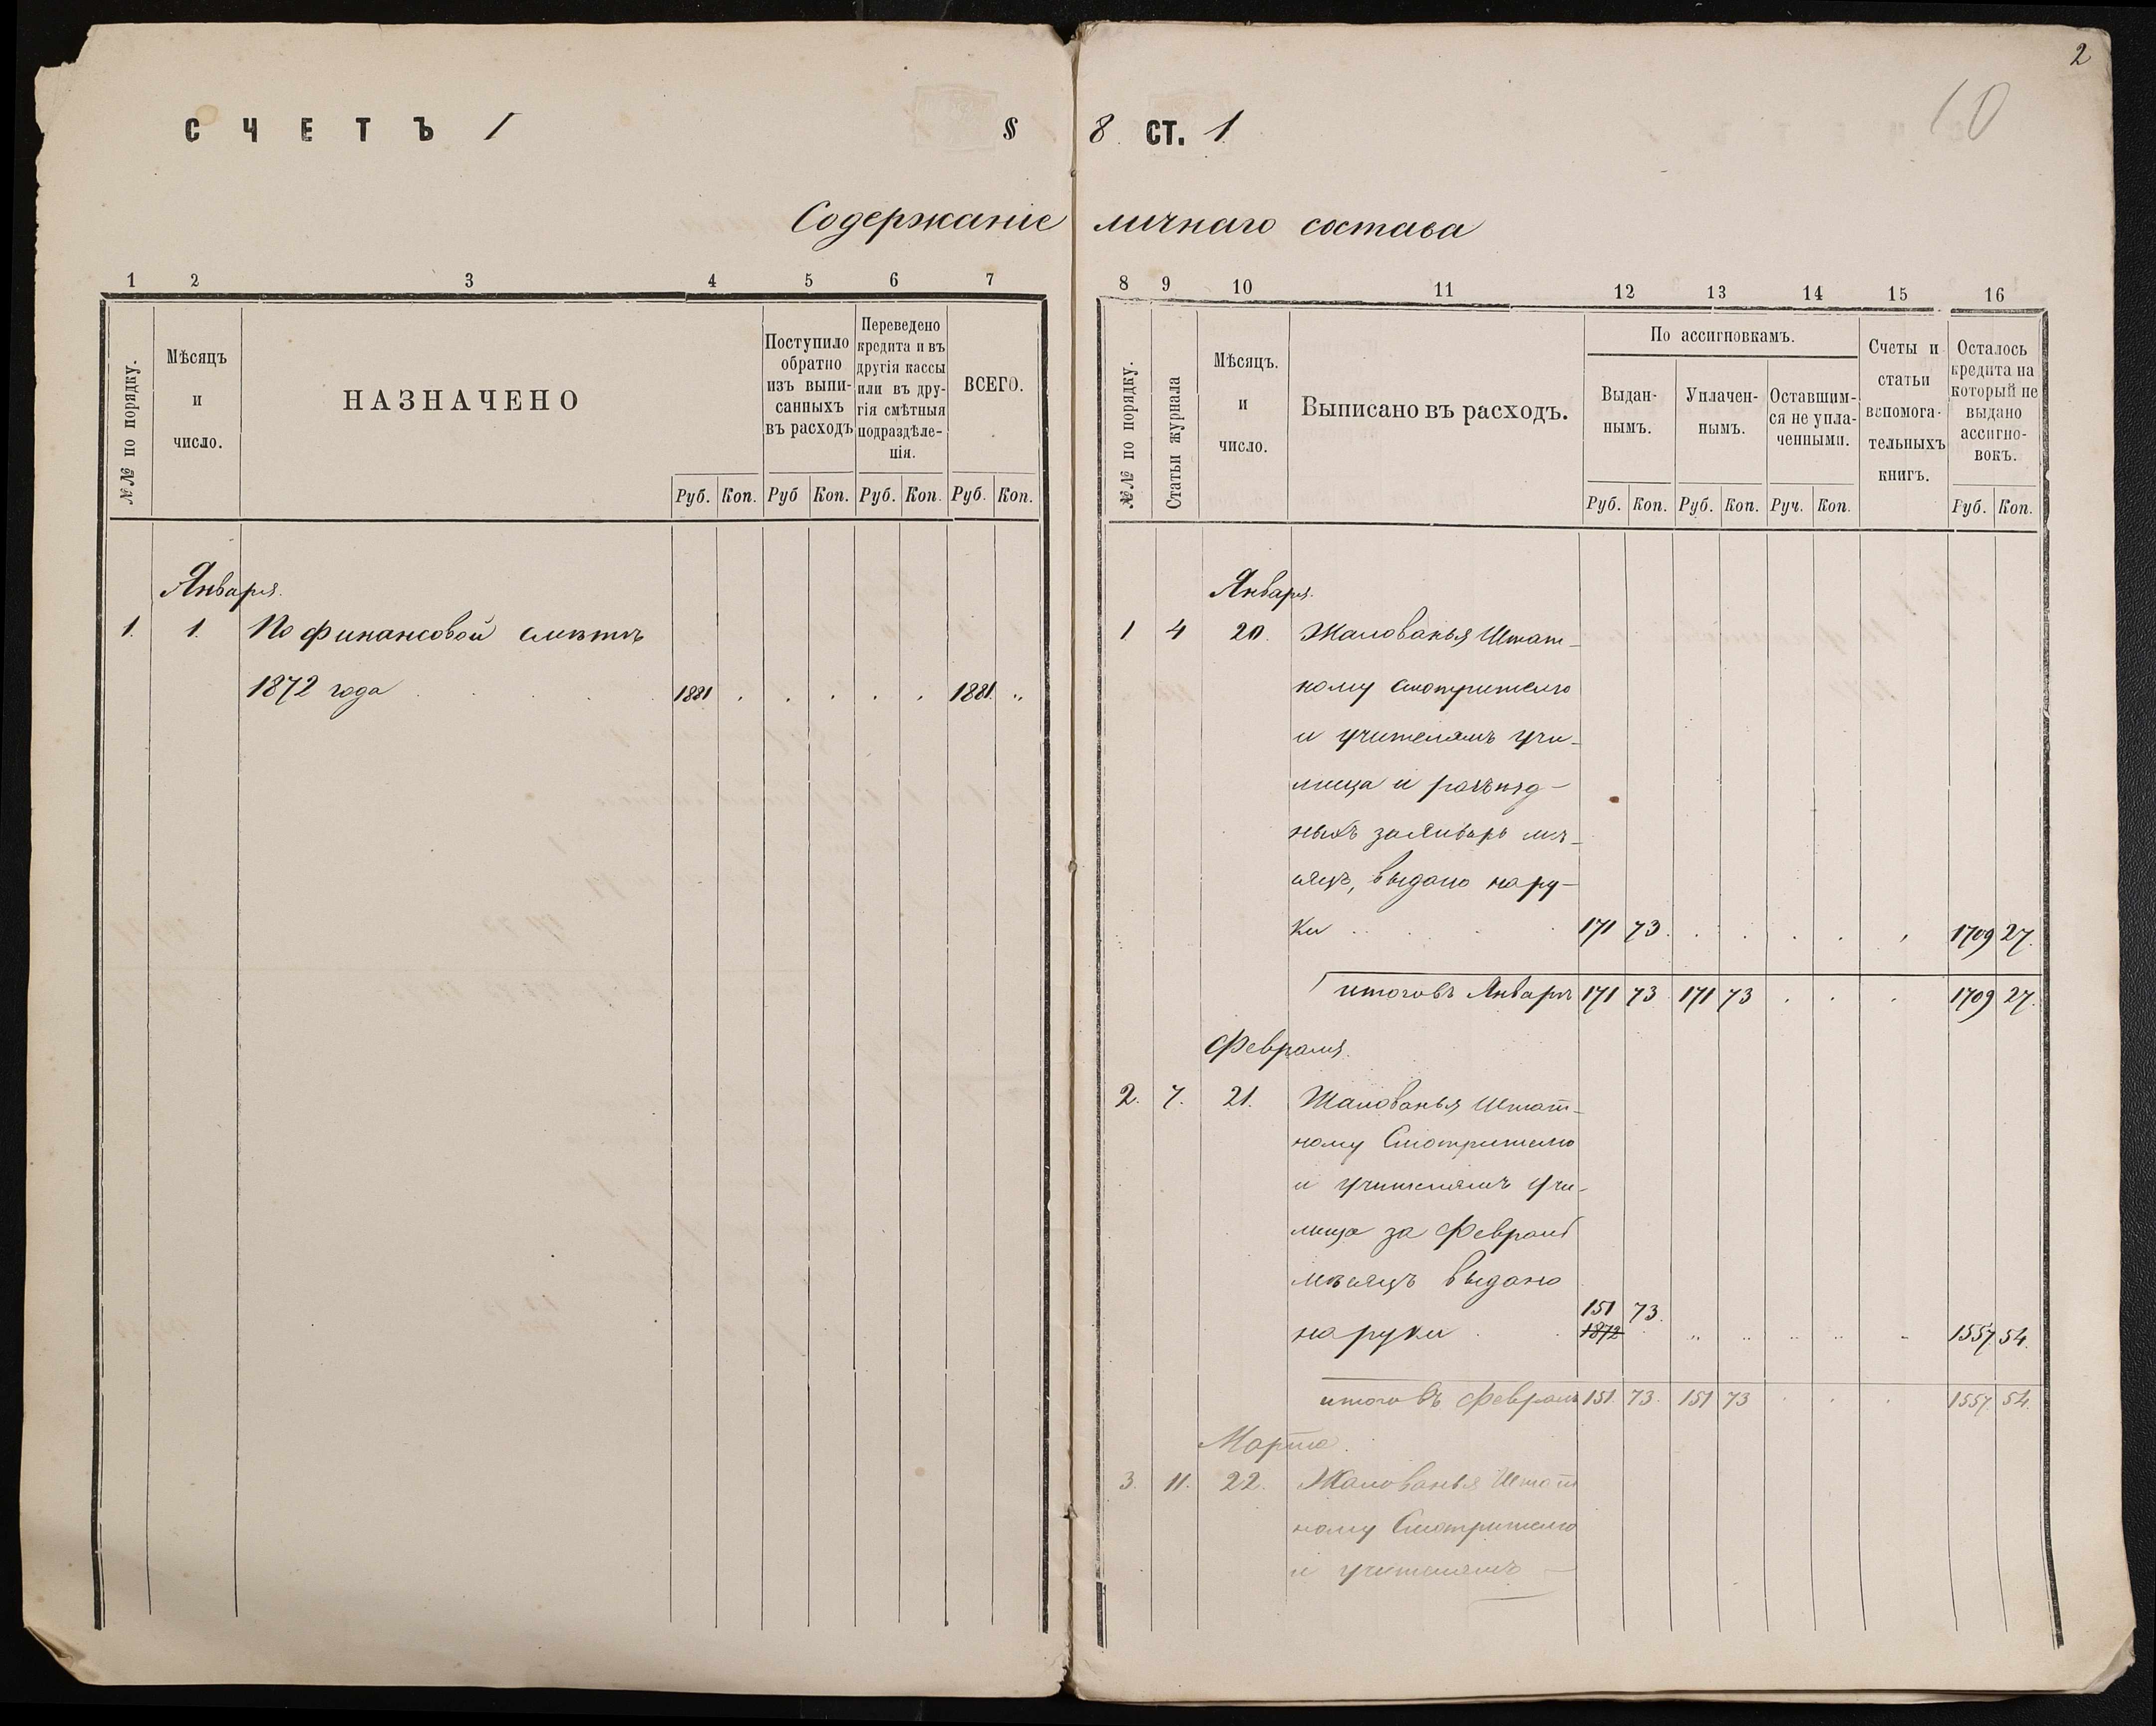 2
10
СЧЕТЪ 1 § 8. СТ. 1.
Содержаніе личнаго состава
1 2 3 4 5 6 7
№№ по порядку.
Мѣсяцъ
и
число.
НАЗНАЧЕНО
Поступило
обратно
изъ выпи-
санныхъ
въ расходъ
Переведено
кредита и въ
другія кассы
или въ дру-
гія смѣтныя
подраздѣле-
нія.
ВСЕГО.
Руб. Коп. Руб Коп. Руб. Коп. Руб. Коп.
Января.
1. 1. По финансовой смѣтѣ
1872 года 1881 . . . . . 1881. „
8 9 10 11 12 13 14 15 16
№№ по порядку.
Статьи журнала
Мѣсяцъ.
и
число.
Выписано въ расходъ.
По ассигновкамъ.
Выдан-
нымъ.
Уплачен-
нымъ.
Оставшим-
ся не упла-
ченными.
Счеты и
статьи
вспомога-
тельныхъ
книгъ.
Осталось
кредита на
который не
выдано
ассигно-
вокъ.
Руб. Коп. Руб. Коп. Руч. Коп. Руб. Коп.
Января.
1 4 20. Жалованья Штат-
ному смотрителю
и учителямъ учи-
лища и разъѣзд-
ныхъ за Январь мѣ-
сяцъ, выдано на ру-
ки 171 73. 1709 27.
итого въ Январѣ 171 73 171 73 . . . 1709 27.
Февраля.
2. 7. 21. Жалованья Штат-
ному Смотрителю
и учителямъ учи-
лища за Февраль
мѣсяцъ выдано
151 73.
на руки 1872 1557. 54.
итого въ Февралѣ 151. 73. 151 73 . . . 1557. 54.
Марта.
3. 11. 22. Жалованья Штат
ному Смотрителю
и учителямъ —